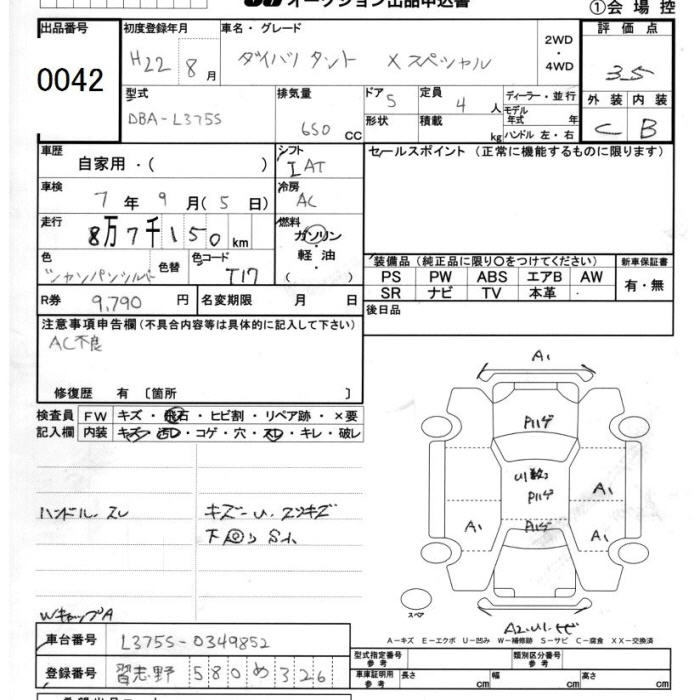 オークション出品申込書
①会場控
出品番号
0042
初度登録年月
H22 8月
車名・グレード
ダイハツ タント Xスペシャル
2WD
・
4WD
評価点
3.5
外装 内装
C B
型式
DBA-L375S
排気量
650 CC
ドア 5
形状
定員 4 人
積載 kg
ディーラー・並行
モデル年式 年
ハンドル 左・右
車歴
自家用・( )
シフト
I AT
セールスポイント(正常に機能するものに限ります)
車検
7年 9月(5日)
冷房
AC
走行
8万7千150 km
燃料
ガソリン
・
軽油
( )
色
シャンパンシルバー
色替
色コード
T17
装備品(純正品に限り〇をつけてください)
PS PW ABS エアB AW
SR ナビ TV 本革 ・
新車保証書
有・無
R券 9,790 円
名変期限 月 日
後日品
注意事項申告欄(不具合内容等は具体的に記入して下さい)
AC不良
修復歴 有〔箇所 〕
検査員
記入欄
FW キズ・飛石・ヒビ割・リペア跡・×要
内装 キズ・汚れ・コゲ・穴・スレ・キレ・破レ
ハンドル スレ
キズ一U.スリキズ
下回り S1
WキャップA
A1
Pハゲ
U1数
Pハゲ
Pハゲ
A1
A1
A1
スペア
A2.U1.ヒビ
A-キズ E-エクボ U-凹み W-補修跡 S-サビ C-腐食 XX-交換済
車台番号
L375S-0349852
登録番号
習志野 580 め 326
型式指定番号
参考
類別区分番号
参考
車庫証明用
参考
長さ cm
幅 cm
高さ cm